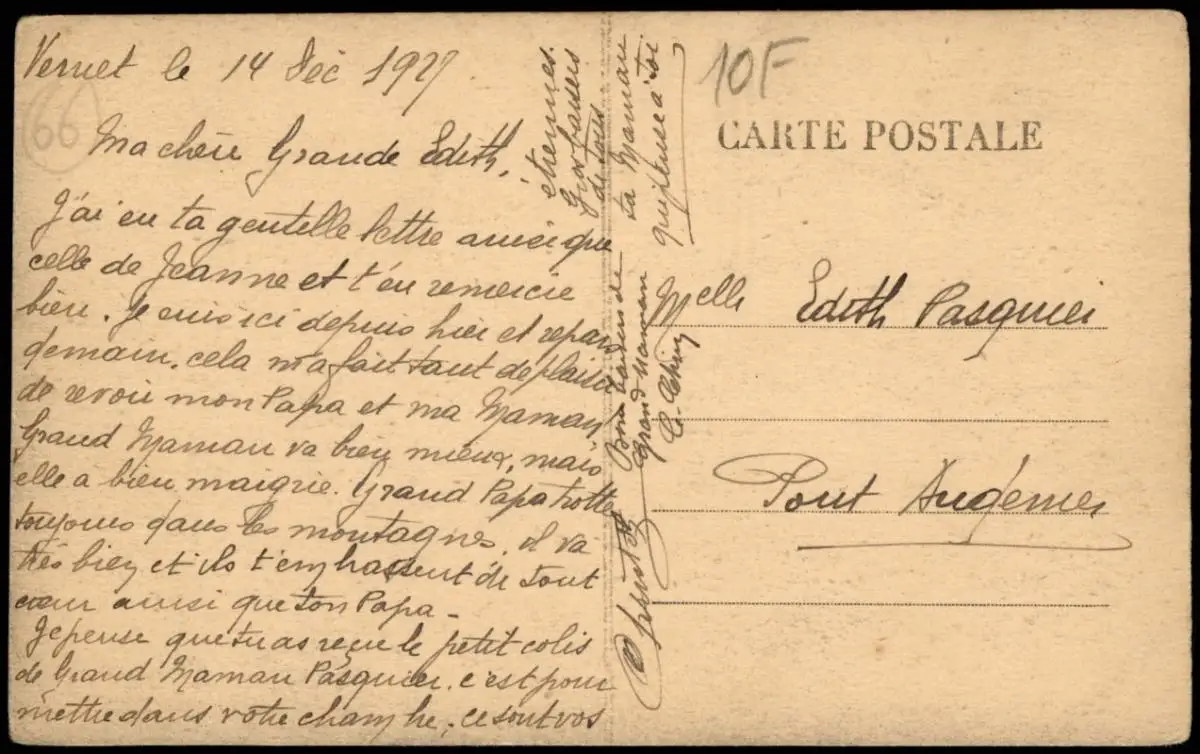 Vernet le 14 Déc 1927
66
Ma chère Grande Edith,
J'ai eu ta gentille lettre ainsi que
celle de Jeanne et t'en remercie
bien. Je suis ici depuis hier et repars
demain. cela m'a fait tant de plaisir
de revoir mon Papa et ma Maman,
Grand Maman va bien mieux, mais
elle a bien maigrie. Grand Papa trotte
toujours dans les montagnes, il va
très bien et ils t'embrassent de tout
cœur ainsi que ton Papa -
Je pense que tu as reçu le petit colis
de Grand Maman Pasquier. c'est pour
mettre dans votre chambre, ce sont vos
étrennes.
Gros baisers
de tous
ta Maman
qui pense à toi
Bons baisers de
Grand Maman
10F
CARTE POSTALE
Melle Edith Pasquier
Pont Audemer